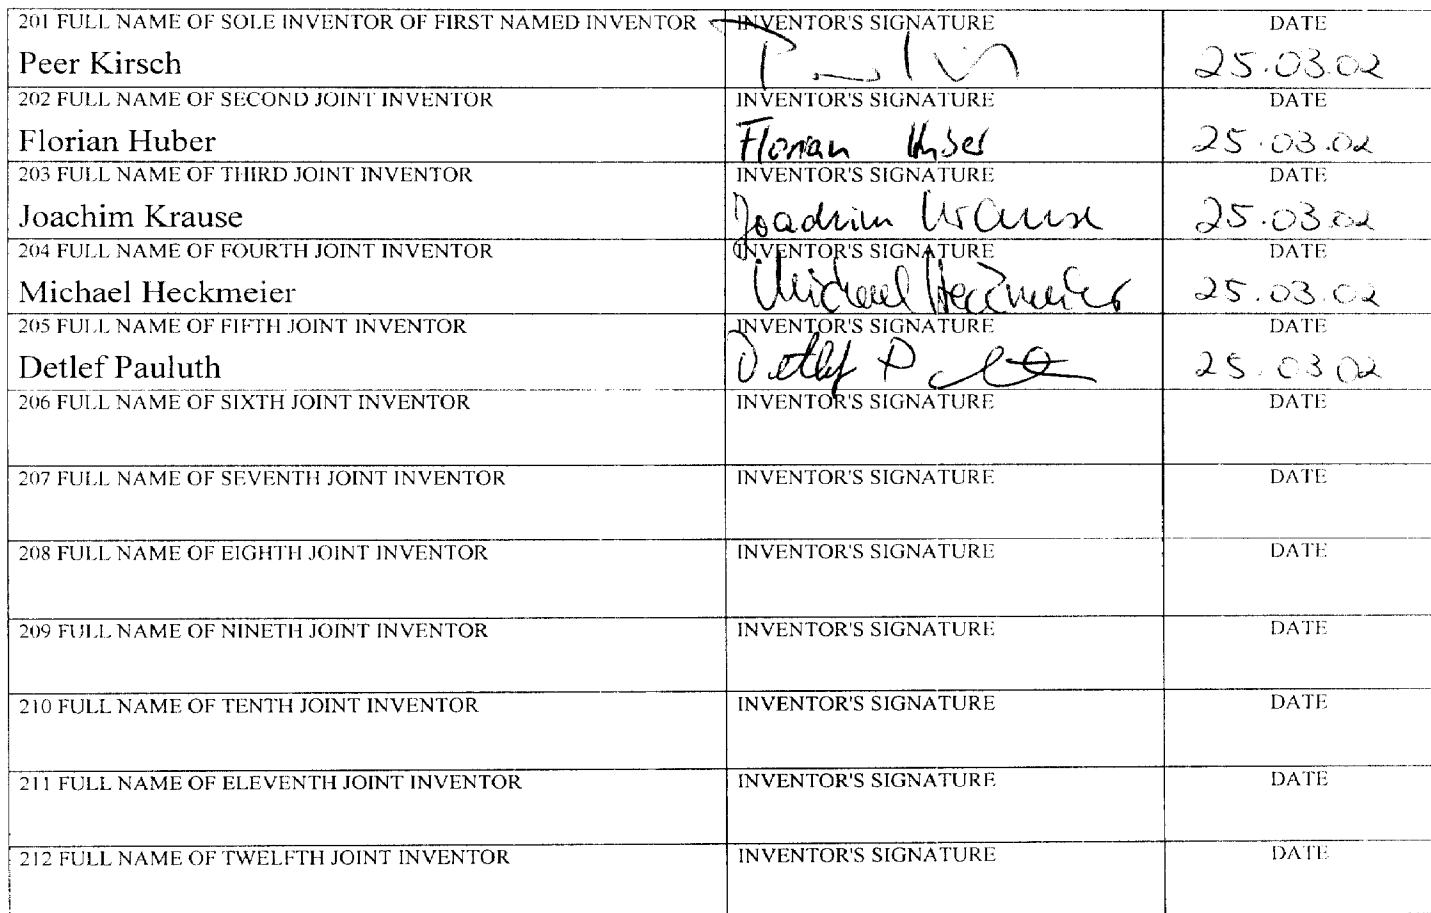 201 FULL NAME OF SOLE INVENTOR OF FIRST NAMED INVENTOR INVENTOR'S SIGNATURE DATE
Peer Kirsch 25.03.02
202 FULL NAME OF SECOND JOINT INVENTOR INVENTOR'S SIGNATURE DATE
Florian Huber Florian Huber 25.03.02
203 FULL NAME OF THIRD JOINT INVENTOR INVENTOR'S SIGNATURE DATE
Joachim Krause Joachim Krause 25.03.02
204 FULL NAME OF FOURTH JOINT INVENTOR INVENTOR'S SIGNATURE DATE
Michael Heckmeier Michael Heckmeier 25.03.02
205 FULL NAME OF FIFTH JOINT INVENTOR INVENTOR'S SIGNATURE DATE
Detlef Pauluth Detlef 25.03.02
206 FULL NAME OF SIXTH JOINT INVENTOR INVENTOR'S SIGNATURE DATE
207 FULL NAME OF SEVENTH JOINT INVENTOR INVENTOR'S SIGNATURE DATE
208 FULL NAME OF EIGHTH JOINT INVENTOR INVENTOR'S SIGNATURE DATE
209 FULL NAME OF NINETH JOINT INVENTOR INVENTOR'S SIGNATURE DATE
210 FULL NAME OF TENTH JOINT INVENTOR INVENTOR'S SIGNATURE DATE
211 FULL NAME OF ELEVENTH JOINT INVENTOR INVENTOR'S SIGNATURE DATE
212 FULL NAME OF TWELFTH JOINT INVENTOR INVENTOR'S SIGNATURE DATE